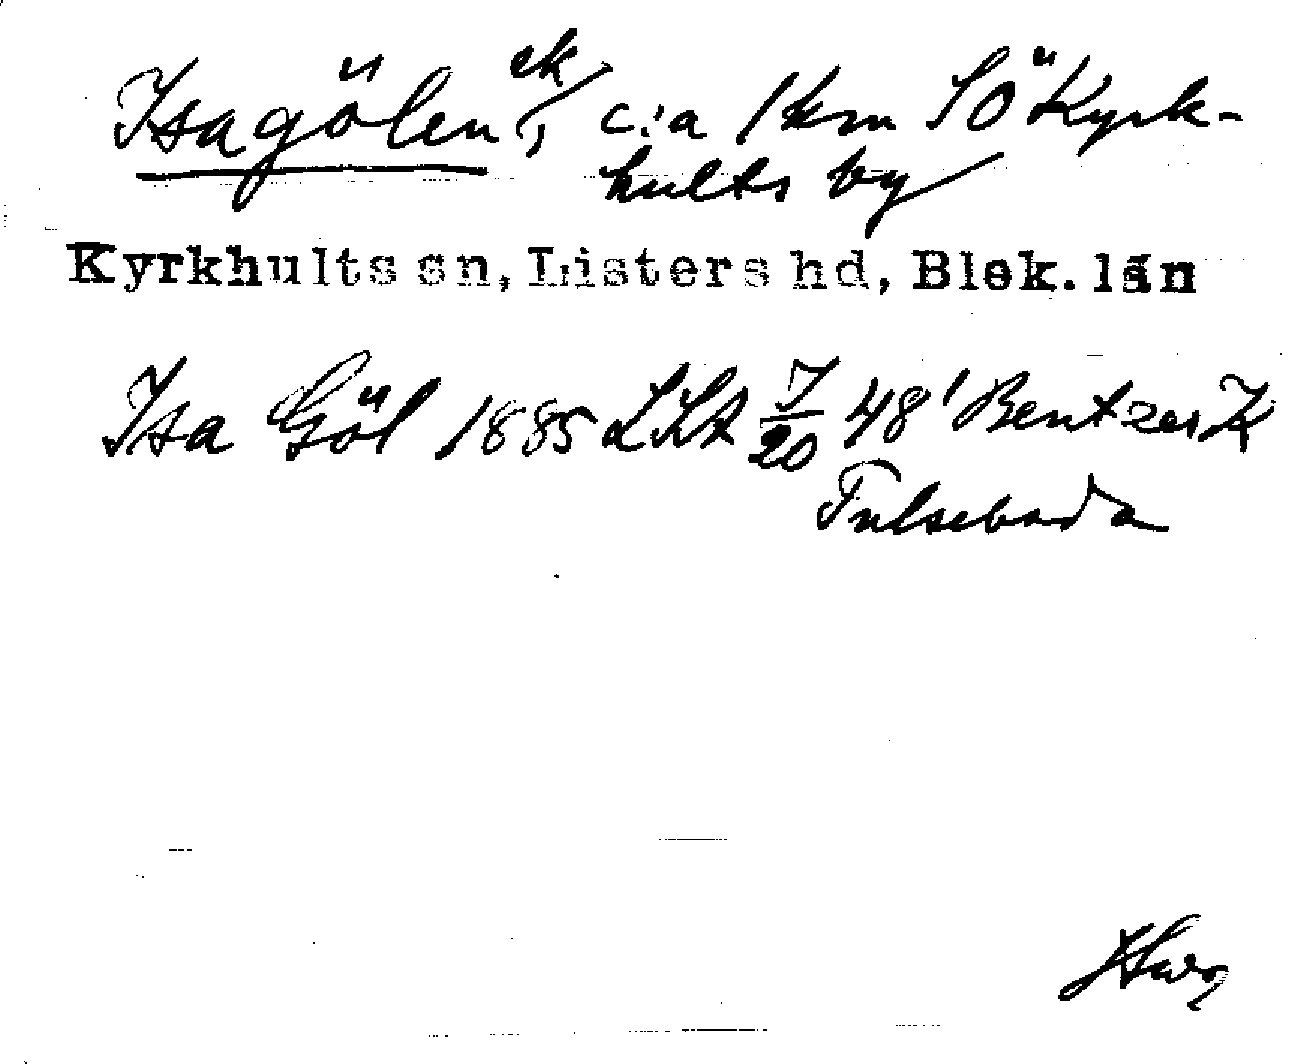 Isagölen ek, c:a 1 km SÖ Kyrk-
hults by
Kyrkhults sn, Listers hd, Blek. län
Isa Göl 1885 LSA 7/20 48' Bentzers K
Fulseboda